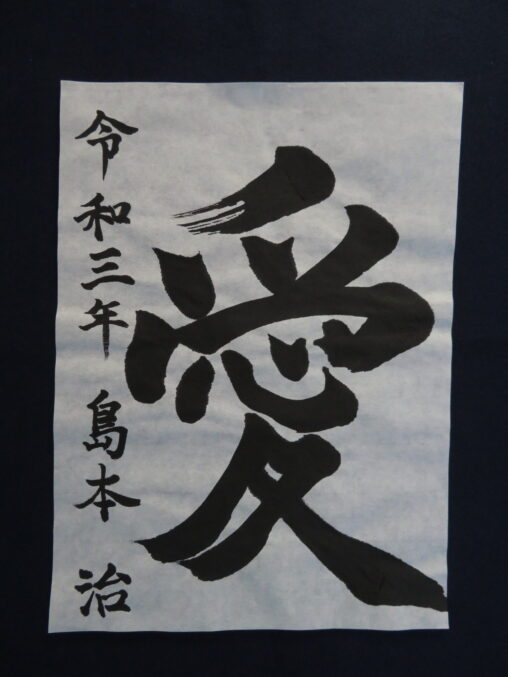 愛
令和三年 島本 治